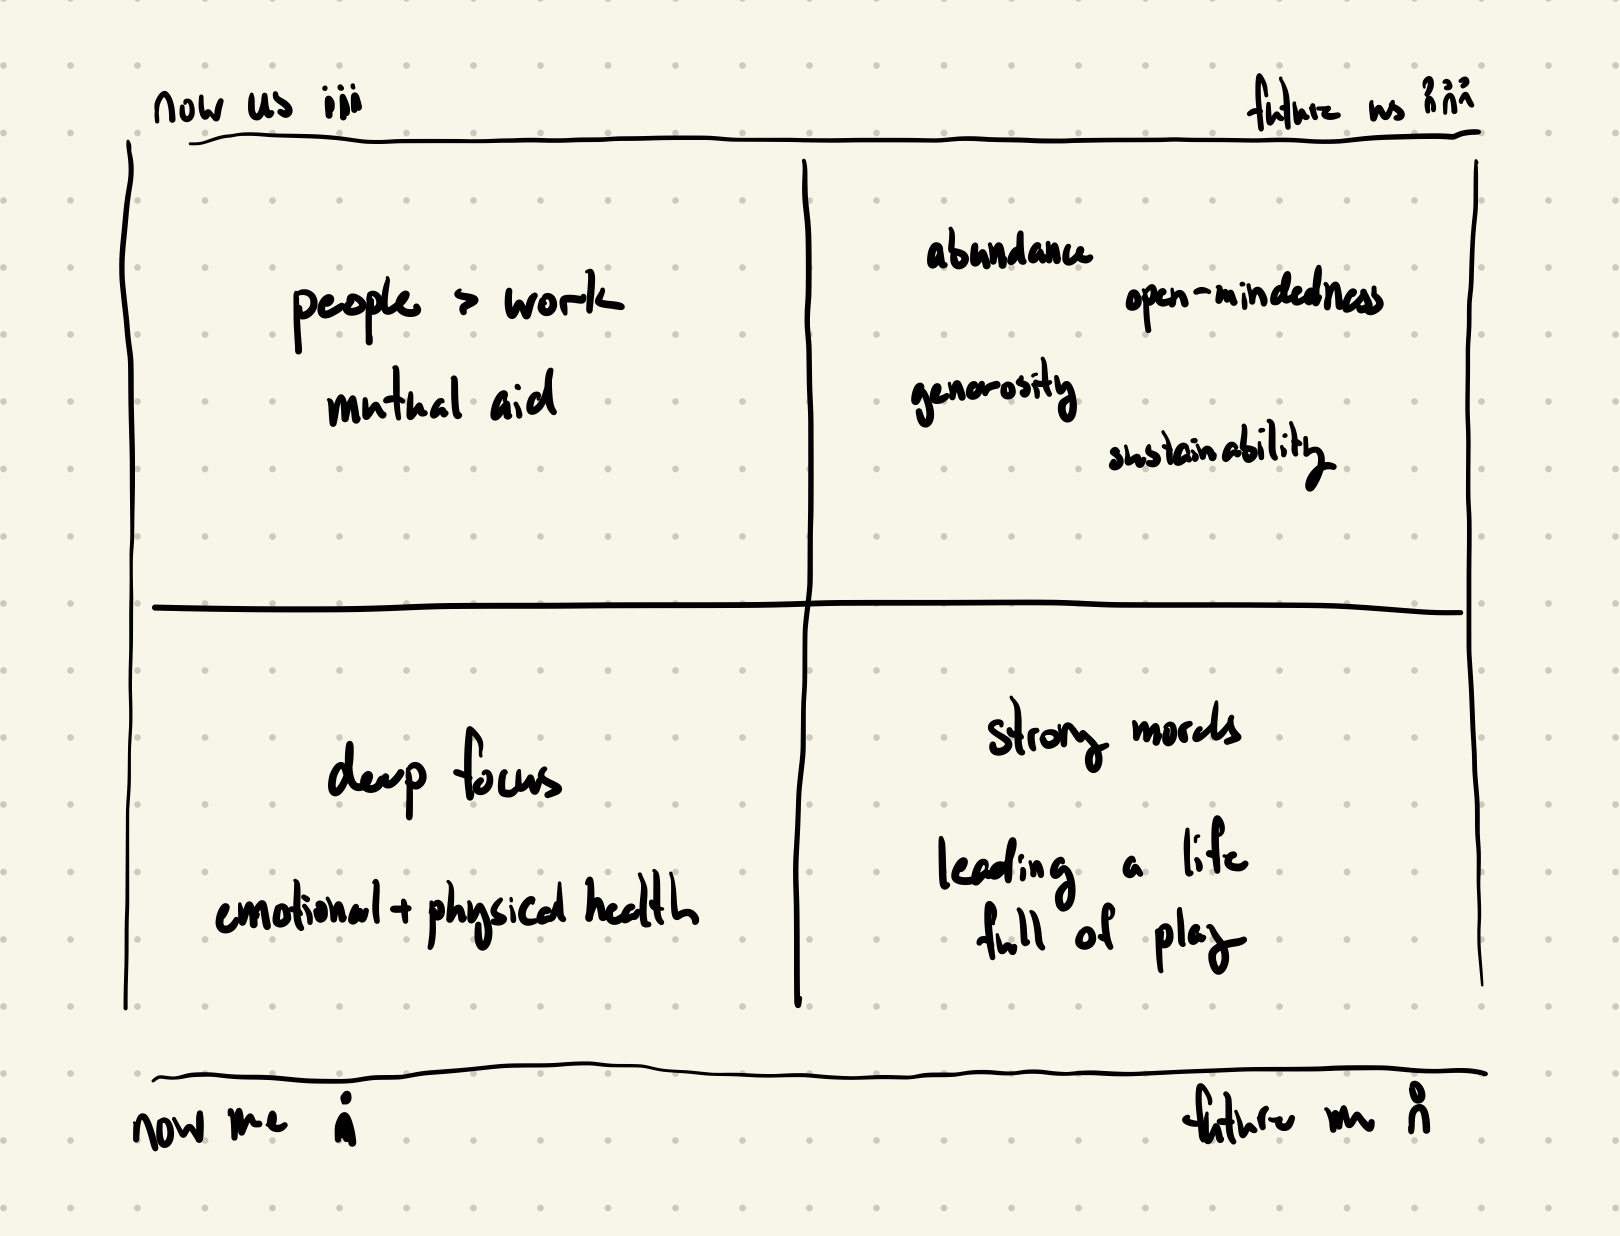 now us
future us
people > work
mutual aid
abundance
open-mindedness
generosity
sustainability
deep focus
emotional + physical health
strong morals
leading a life
full of play
now me
future me